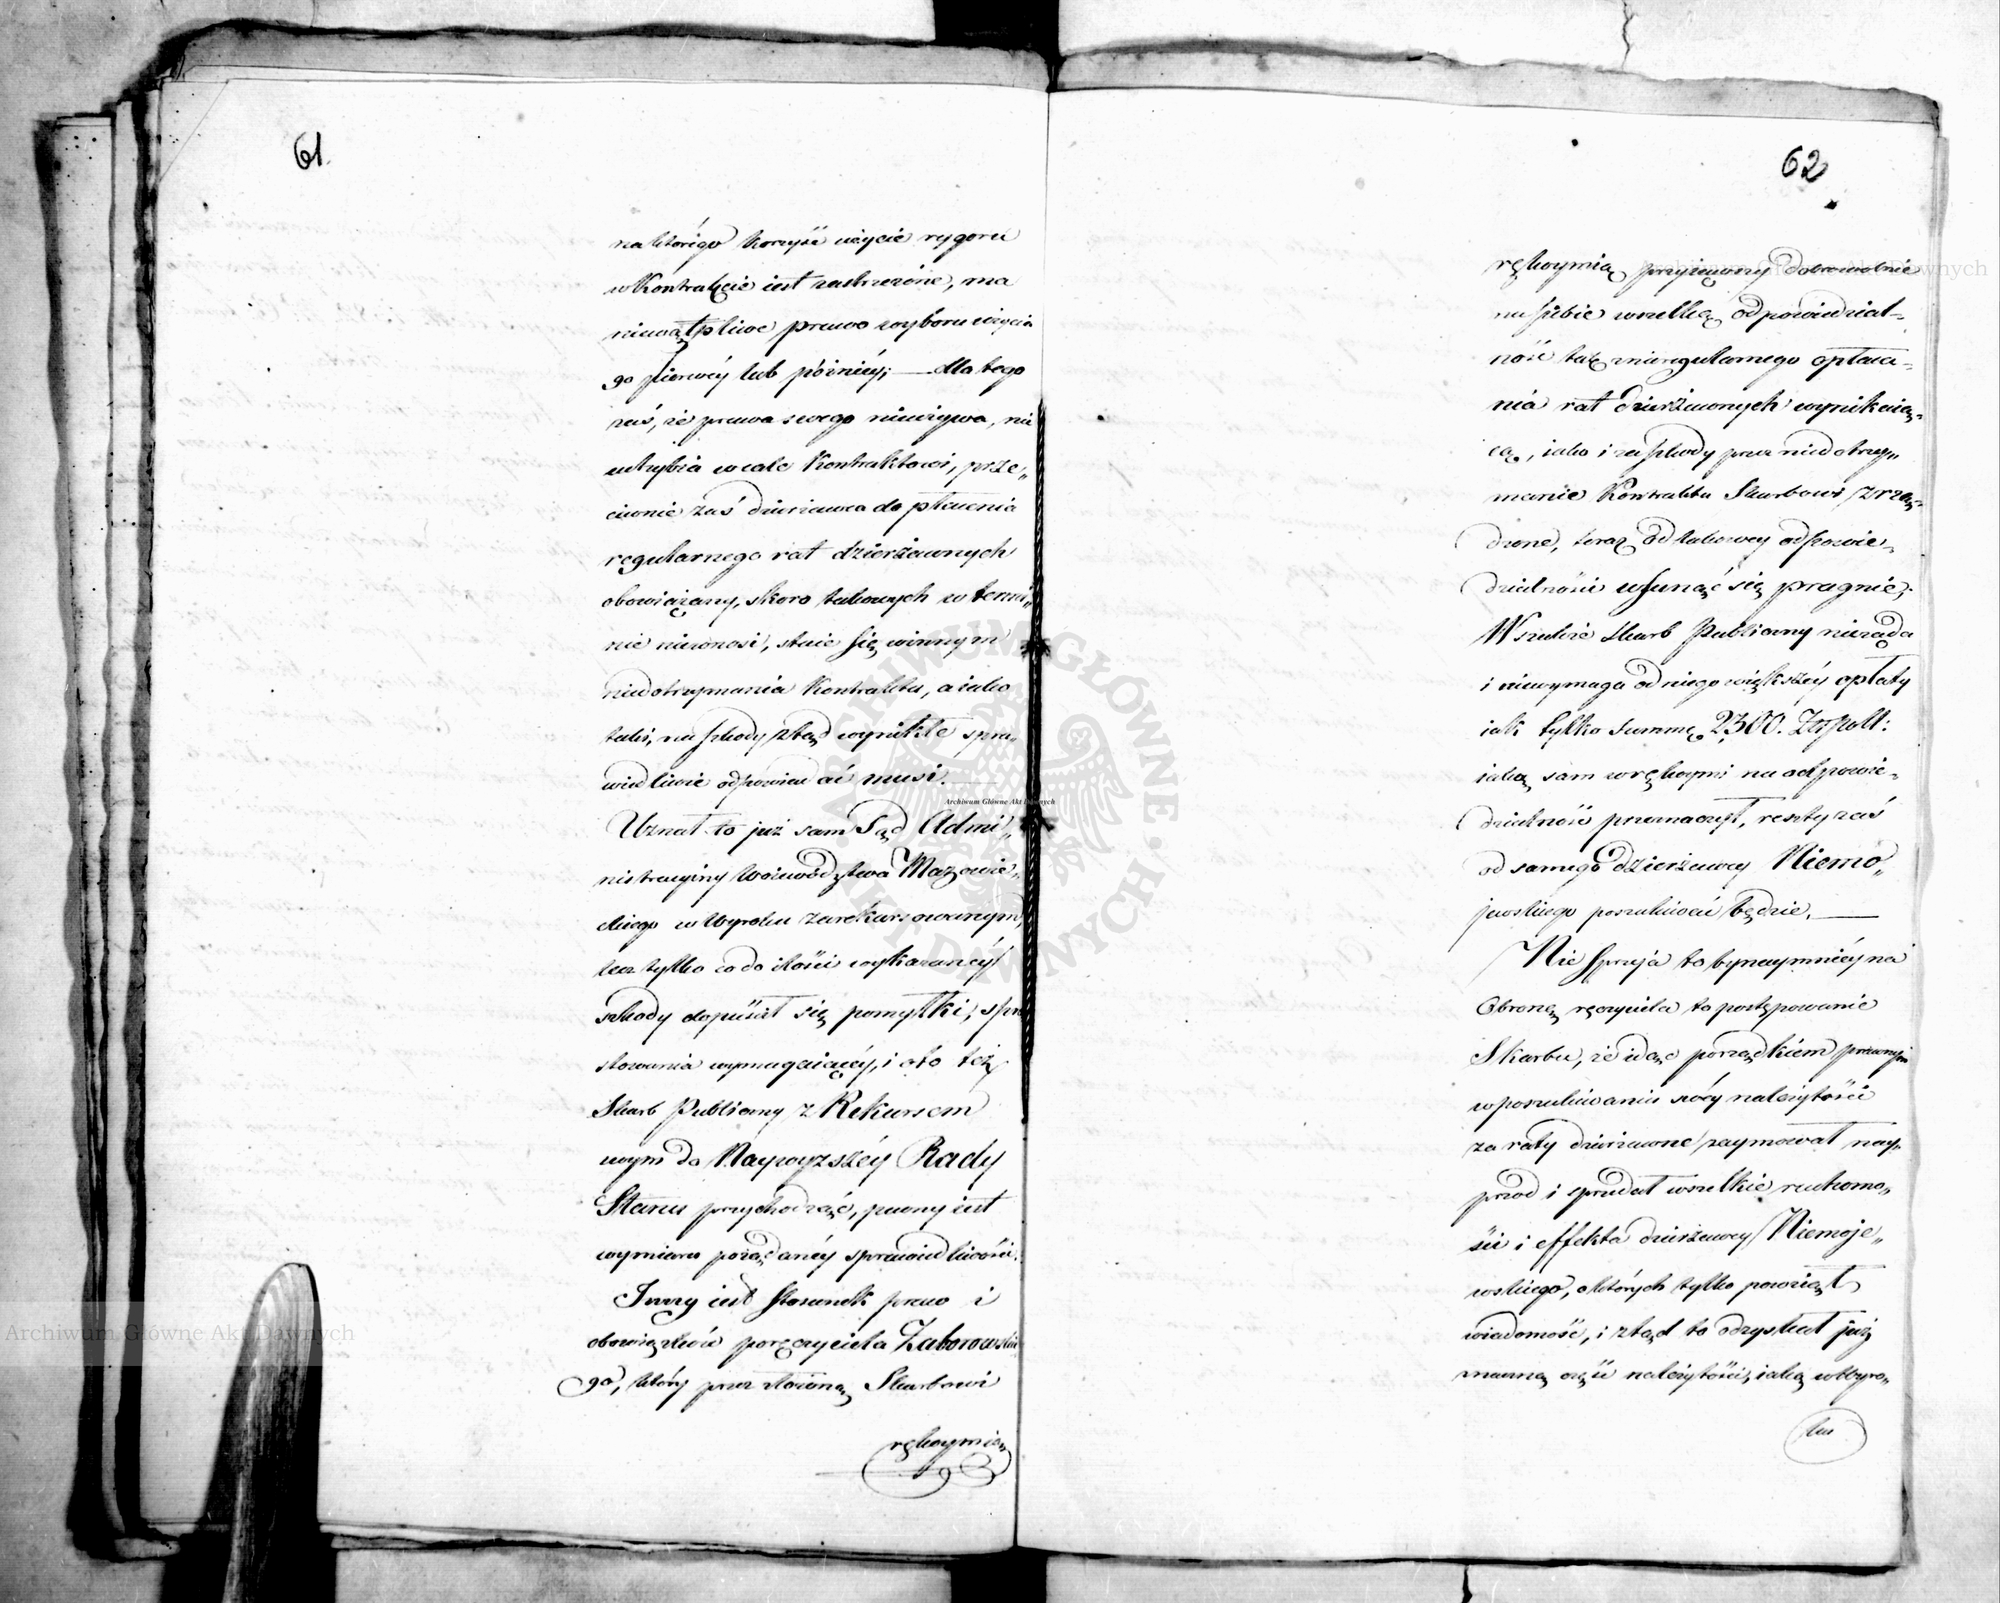 61.
na którego korzyść użycie rygoru
w Kontrakcie iest zastrzeżone, ma
niewątpliwe prawo wyboru użycia
go pierwéy lub późniéy; — dla tego
zaś, że prawa swego nieużywa, nie
uchybia wcale Kontraktowi, prze„
ciwnie zaś dzierżawca do płacenia
regularnego rat dzierżawnych
obowiązany, skoro takowych w termi„
nie niewnosi, staie się winnym
niedotrzymania Kontraktu, a iako
taki, na szkody ztąd wynikłe spra„
wiedliwie odpowiadać musi. —
Uznał to już sam Sąd Admi„
nistracyiny Woiewództwa Mazowie„
ckiego w Wyroku zarekursowanym,
lecz tylko co do ilości wykazanéy
szkody dopuścił się pomyłki, spro
stowania wymagaiącéy, i oto też
Skarb Publiczny z Rekursem
swym do Naywyzszéy Rady
Stanu przychodząc, pewny iest
wymiaru pożądanéy sprawiedliwości.
Inny iest stosunek praw i
obowiązków poręczyciela Zaborowskie
go, który przez złożoną Skarbowi
rękoymią
62
rękoymią przyiąwszy dobrowolnie
na siebie wszelką odpowiedzial„
ność tak z nieregularnego opłaca„
nia rat dzierżawnych wynikaią„
cą, iako i za szkody przez niedotrzy„
manie Kontraktu Skarbowi zrzą„
dzone, teraz od takowey odpowie„
dzialności usunąć się pragnie;
Wszakże Skarb Publiczny nieżąda
i niewymaga od niego większéy opłaty
iak tylko Summę 2,300. Złpolt:
iaką sam w rękoymi na odpowie„
dzialność przeznaczył, reszty zaś
od samego dzierżawcy Niemo„
jewskiego poszukiwać będzie. —
Nie sprzyja to bynaymniéy na
Obronę ręczyciela to postępowanie
Skarbu, że idąc porządkiem prawnym
w poszukiwaniu swéy należytości
za raty dzierżawne zaymował nay„
przod i sprzedał wszelkie ruchomo„
ści i effekta dzierżawcy Niemoje„
wskiego, o których tylko powziął
wiadomość, i ztąd to odzyskał już
znaczną część należytości, iaką w Wyro„
ku
Archiwum Główne Akt Dawnych
Archiwum Główne Akt Dawnych
Archiwum Główne Akt Dawnych
ARCHIWUM GŁÓWNE AKT DAWNYCH